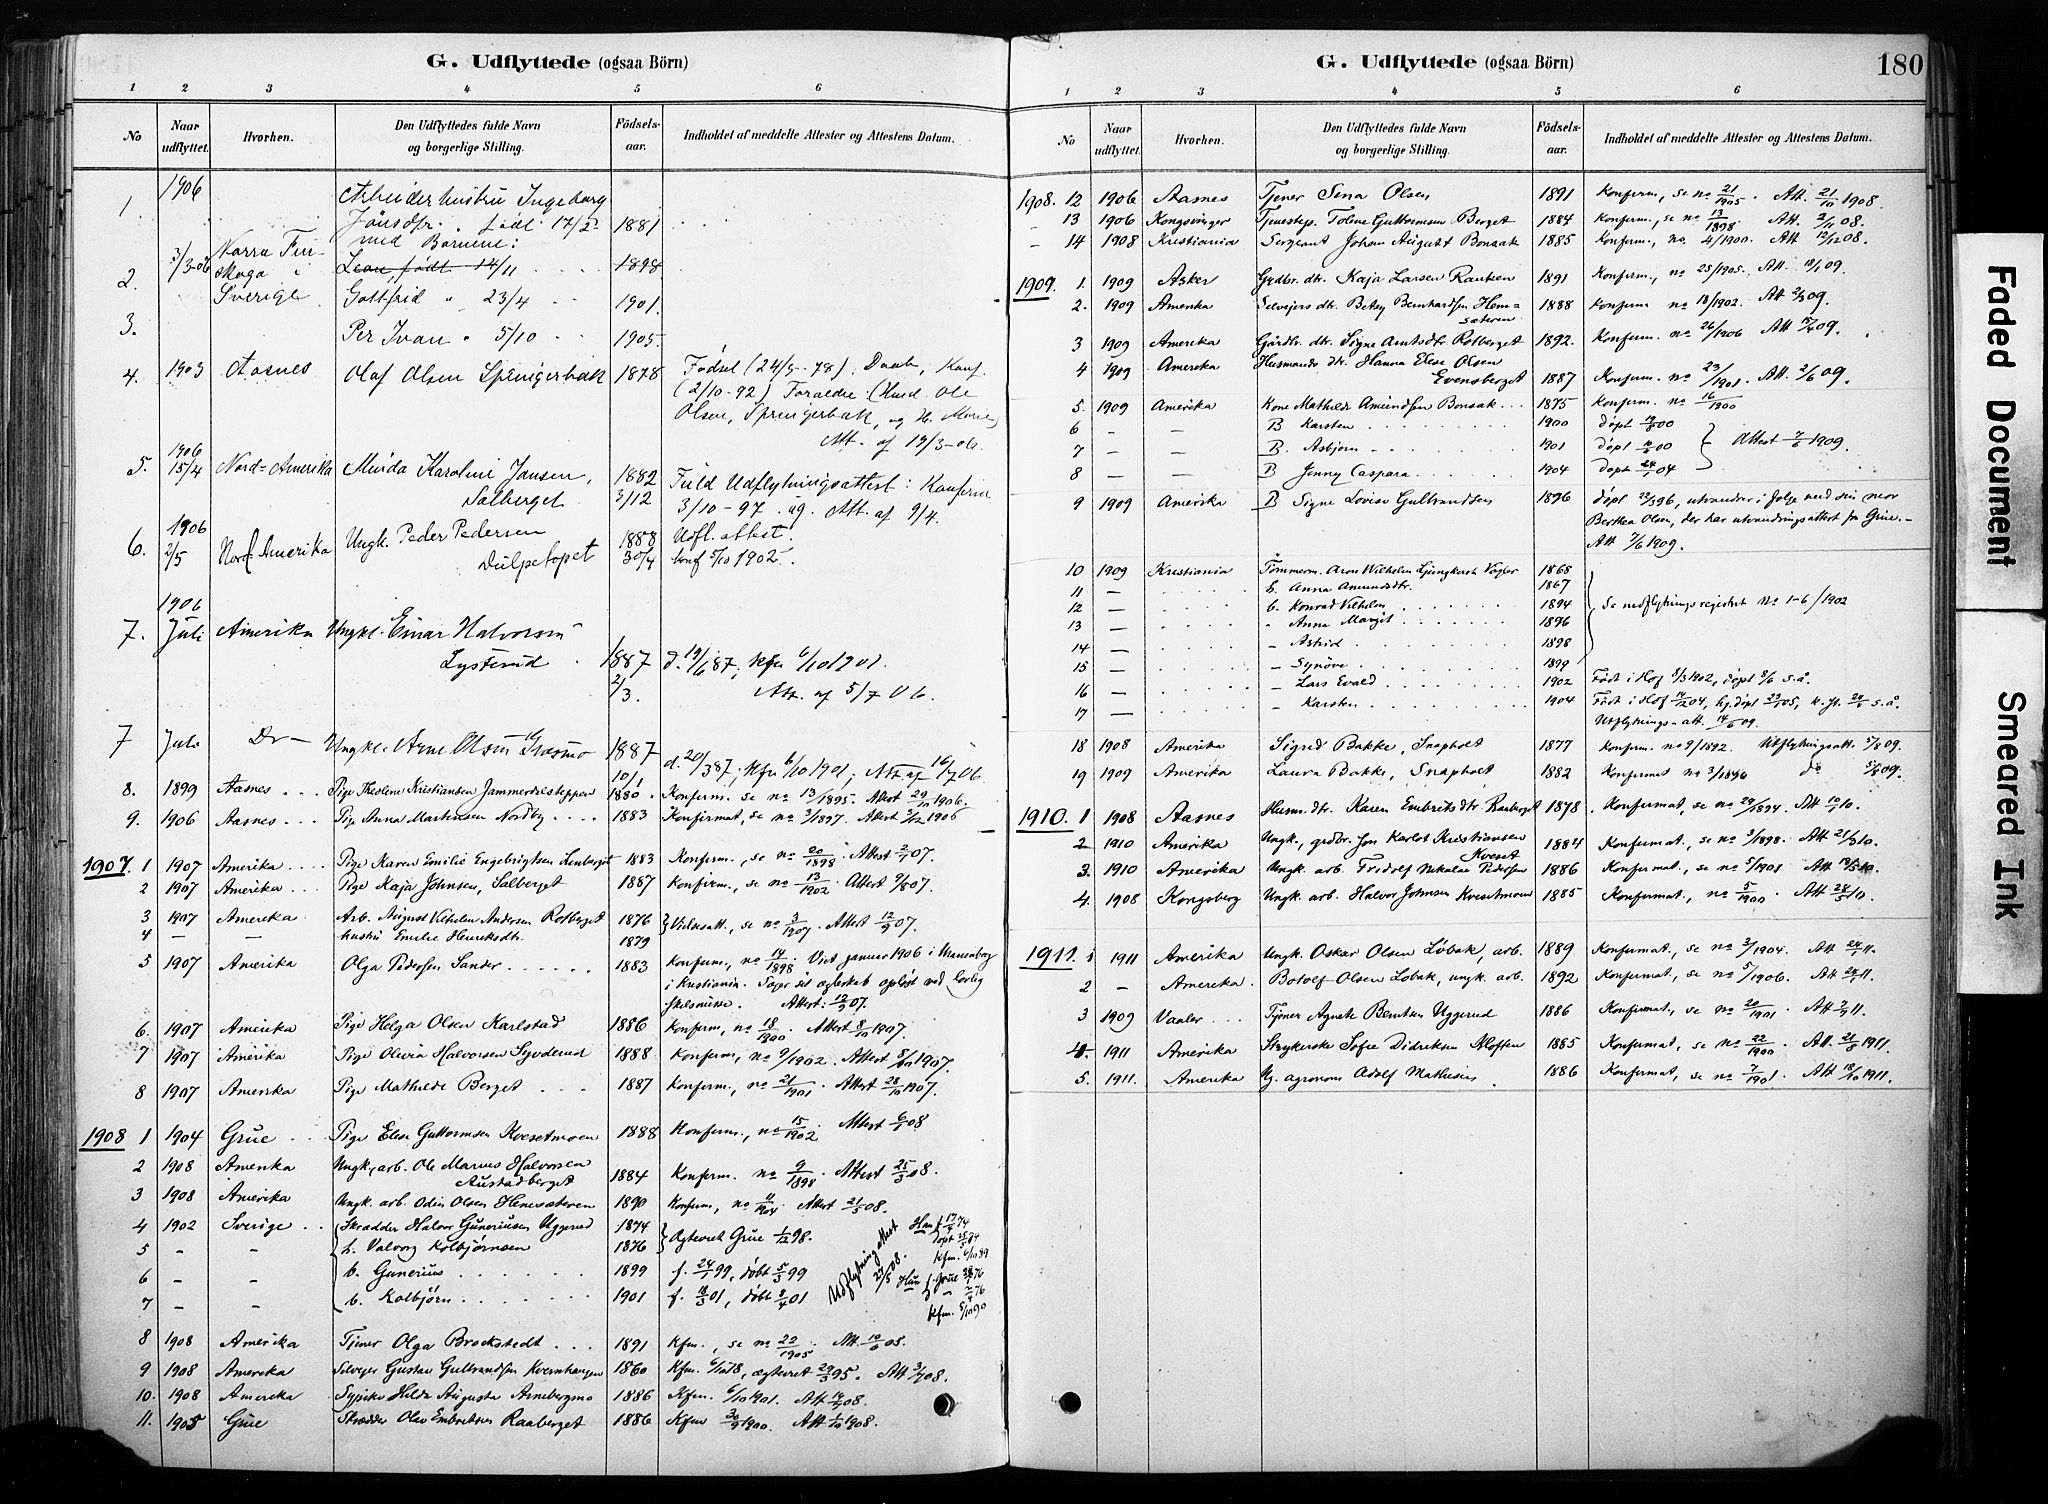 G. Udflyttede (ogsaa Börn)
1 2 3 4 5 6
No Naar udflyttet. Hvorhen. Den Udflyttedes fulde Navn og borgerlige Stilling. Födsels-aar. Indholdet af meddelte Attester og Attestens Datum.
1906 Arbeider hustru Ingeborg
1 Jönsdtr. födt 17/2 1881
med Børnene:
3/3-06 Norra Fin-
2. skoga i Leon, født 14/11 1898
Sverige Gottfrid " 23/4 1901.
3. Per Ivan " 5/10 1905
4. 1903 Aasnes Olaf Olsen Springerbak 1878 Födsel (24/5-78), Daab, Konf.
(2/10-92) Foraeldre: (Husd. Ole
Olsen, Springerbak, og H. Marie)
Att. af 19/3-06.
1906
5. 15/4 Nord-Amerika Minda Karoline Jansen, 1882 Fuld Udflytningsattest: Konfirm
Salberget 3/12 3/10-97. og. Att. af 9/4.
1906
6. 2/5 Nord Amerika Ungk. Peder Pedersen 1888 Udfl. attest.
Dulpetopet 30/4 konf 5/10 1902.
1906
7. Juli Amerika Ungkl. Einar Halvorsen
Lysterud 1887 d. 19/6 87; Kfr 6/10 1901.
2/3. Att. af 5/7 06.
7 Juli Do Ungkl. Arne Olsen Grasmo 1887 d. 20/3 87; Kfr 6/10 1901; Att af 16/7 06.
10/1
8. 1899 Aasnes Pige Theslene Kristiansen Jammerdalsteppen 1880. Konfirm. se no 13/1895. Attest 29/10 1906.
9. 1906 Aasnes Pige Anna Martinsen Nordby 1883 Konfirmat, se no 3/1897. Attest 3/12 1906
1907. 1 1907 Amerika Pige Karen Emilie Engebrigtsen Lenberget 1883 Konfirm., se no 20/1898. Attest 2/1 07.
2 1907 Amerika Pige Kaja Johnsen, Salberget 1887 Konfirm., se no 13/1902. Attest 9/8 07.
3 1907 Amerika Arb. August Vilhelm Andersen Rotberget 1876 Vielsesatt., se no 3/1907. Attest 12/9 07.
4 – – hustru Emilie Henriksdtr. 1879
5 1907 Amerika Olga Pedersen Sander 1883 Konfirm., no 14/1898. Viet januar 1906 i
i Kristiania. Siger sit ægteskab opløst ved Lovlig
skilsmisse. Attest: 12/9 07.
6. 1907 Amerika Pige Helga Olsen Karlstad 1886 Konfirm., no 18/1900. Attest 8/10 1907.
7 1907 Amerika Pige Olivia Halvorsen Syvderud 1888 Konfirm., no 9/1902. Attest 8/10 1907.
8 1907 Amerika Pige Mathilde Berget 1887 Konfirm., no 21/1901. Attest 28/10 1907.
1908 1 1904 Grue Pige Elise Guttormsen Kvesetmoen 1888 Konfirm., no 15/1902. Attest 6/1 08
2 1908 Amerika Ungk., arb. Ole Marius Halvorsen
Austadberget 1884 Konfirm. no 9/1898. Attest 25/3 08.
3 1908 Amerika Ungk. arb. Odin Olsen Hemsæteren 1890 Konfirm., no 11/1904. Attest 21/5 08.
4 1902 Sverige Skrædder Halvor Guneriusen Uggerud 1874 Ægteviet Grue 1/12 98. Han f. 17/4 74
5 – – h. Valborg Kolbjørnsen 1876 døpt 25/5 74
Kfm. 6/10 89
6 – – b. Gunerius 1899 f. 24/1 99, døbt 5/3 99 Hun f. Grue 28/1 76
7 – – b. Kolbjørn 1901 f. 18/3 01, døbt 8/4 01 Kfm. 5/10 90
Udflytning Attest 27/5 08.
8 1908 Amerika Tjener Olga Brockstedt 1891 Kfm., se no 22/1905. Att. 10/6 08.
9 1908 Amerika Selveier Gustav Gulbrandsen Kvernhaugen 1860 Kfm. 6/10 78, ægteviet 29/3 95. Att 3/7 08.
10. 1908 Amerika Sypike Hilda Augusta Arnebergmo 1886 Kfm. 6/10 1901. Att 14/9 08.
11. 1905 Grue Skrædder Olav Embretsen Raaberget 1886 Kfm 30/9 1900. Att 1/10 1908.
G. Udflyttede (ogsaa Börn)
180
1 2 3 4 5 6
No Naar udflyttet. Hvorhen. Den Udflyttedes fulde Navn og borgerlige Stilling. Födsels-aar. Indholdet af meddelte Attester og Attestens Datum.
1908. 12 1906 Aasnes Tjener Sina Olsen 1891 Konfirm., se no 21/1905. Att. 21/10 1908.
– 13 1906 Kongsvinger Tjenestep. Toline Guttormsen Berget 1884 Konfirm., se no 13/1898 Att. 2/11 08.
– 14 1908 Kristiania Sergeant Johan August Bonsak 1885 Konfirm., no 4/1900. Att 12/12 08.
1909. 1. 1909 Asker Grdbr. dtr. Kaja Larsen Rauken 1891 Konfirm., no 25/1905. Att. 18/1 09.
2. 1909 Amerika Selveiers dtr. Betsy Bernhardsen Hem=
sæteren 1888 Konfirm no 18/1902. Att 2/3 09.
3 1909 Amerika Gårdbr. dtr. Signe Arntsdtr Rotberget 1892. Konfirm. no 26/1906 Att 15/4 09.
4 1909 Amerika Husmands dtr. Hanna Elise Olsen
Evensberget 1887 Konfirm. no 23/1901. Att. 2/6 09.
5. 1909 Amerika Kone Mathilde Amundsen Bonsak 1875 Konfirm. no 16/1900
6 – – B Karsten 1900 døpt 19/8 00
7 – – B. Asbjørn 1901 døpt 16/5 00 Attest 7/6 1909.
8 – – B Jenny Caspara 1904 døpt 24/4 04
9 1909 Amerika B Signe Lovise Gulbrandsen 1896 døpt 22/3 96, utvandrer i følge med sin mor
Berthea Olsen, der har utvandringsattest fra Grue.
Att 7/6 1909.
10 1909 Kristiania Tømmerm. Aron Wilhelm Ljungkvist Vogler 1868
11 – E. Anna Amundsdtr. 1867
12 – b. Konrad Vilhelm 1894 Se indflytningsregistret No 1-6/1902
13 – " Anna Margit 1896
14 – – Astrid 1898
15 – – Synöve 1899
16 – – Lars Evald 1902 Født i Hof 8/3 1902, døpt 8/6 s.å.
17 – – Karsten 1904 Født i Hof 14/12 04, hj.døpt 23/1 05, k.fr. 24/5 s.å.
Utflytnings-att. 14/6 09.
18 1908 Amerika Sigrid Bakke, Snapholt 1877 Konfirm. no 9/1892. Utflytningsatt. 5/8 09.
19 1909 Amerika Laura Bakke, Snapholt 1882 Konfirmat no 3/1896 do 5/8 09.
1910. 1 1908 Aasnes Husm. dtr. Karen Embretsdtr Raaberget 1878 Konfirmat, se no 29/1894. Att 10/1 10.
2 1910 Amerika Ungk., grdbr. Jon Karlot Kristiansen
Kveset 1884 Konfirmat., se no 3/1898. Att 21/3 10.
3. 1910 Amerika Ungk. arb. Fridolf Nikolai Pedersen 1886 Konfirmat., se no 5/1901 Att 19/5 10.
4. 1908 Kongsberg Ungk. arb. Halvor Johnsen Kvesetmoen 1885 Konfirmat., no 5/1900 Att 28/5 10.
1911. 1 1911 Amerika Ungk. Oskar Olsen Løbak, arb. 1889 Konfirmat., se no 3/1904. Att 24/1 11.
2 – Amerika. Botolf Olsen Løbak, ungk. arb. 1892 Konfirmat, se no 5/1906. Att 24/1 11.
3 1909 Vaaler Tjener Agnete Berntsen Uggerud 1886 Konfirmat., se no 20/1901. Att 7/7 11.
4. 1911 Amerika Strykerske Sofie Didriksen Moften 1885 Konfirmat, se no 22/1900. Att. 21/8 1911.
5. 1911. Amerika Ug. agronom Adolf Mathisen 1886 Konfirmat, se no 7/1901. Att 18/10 1911.
Faded Document
Smeared Ink